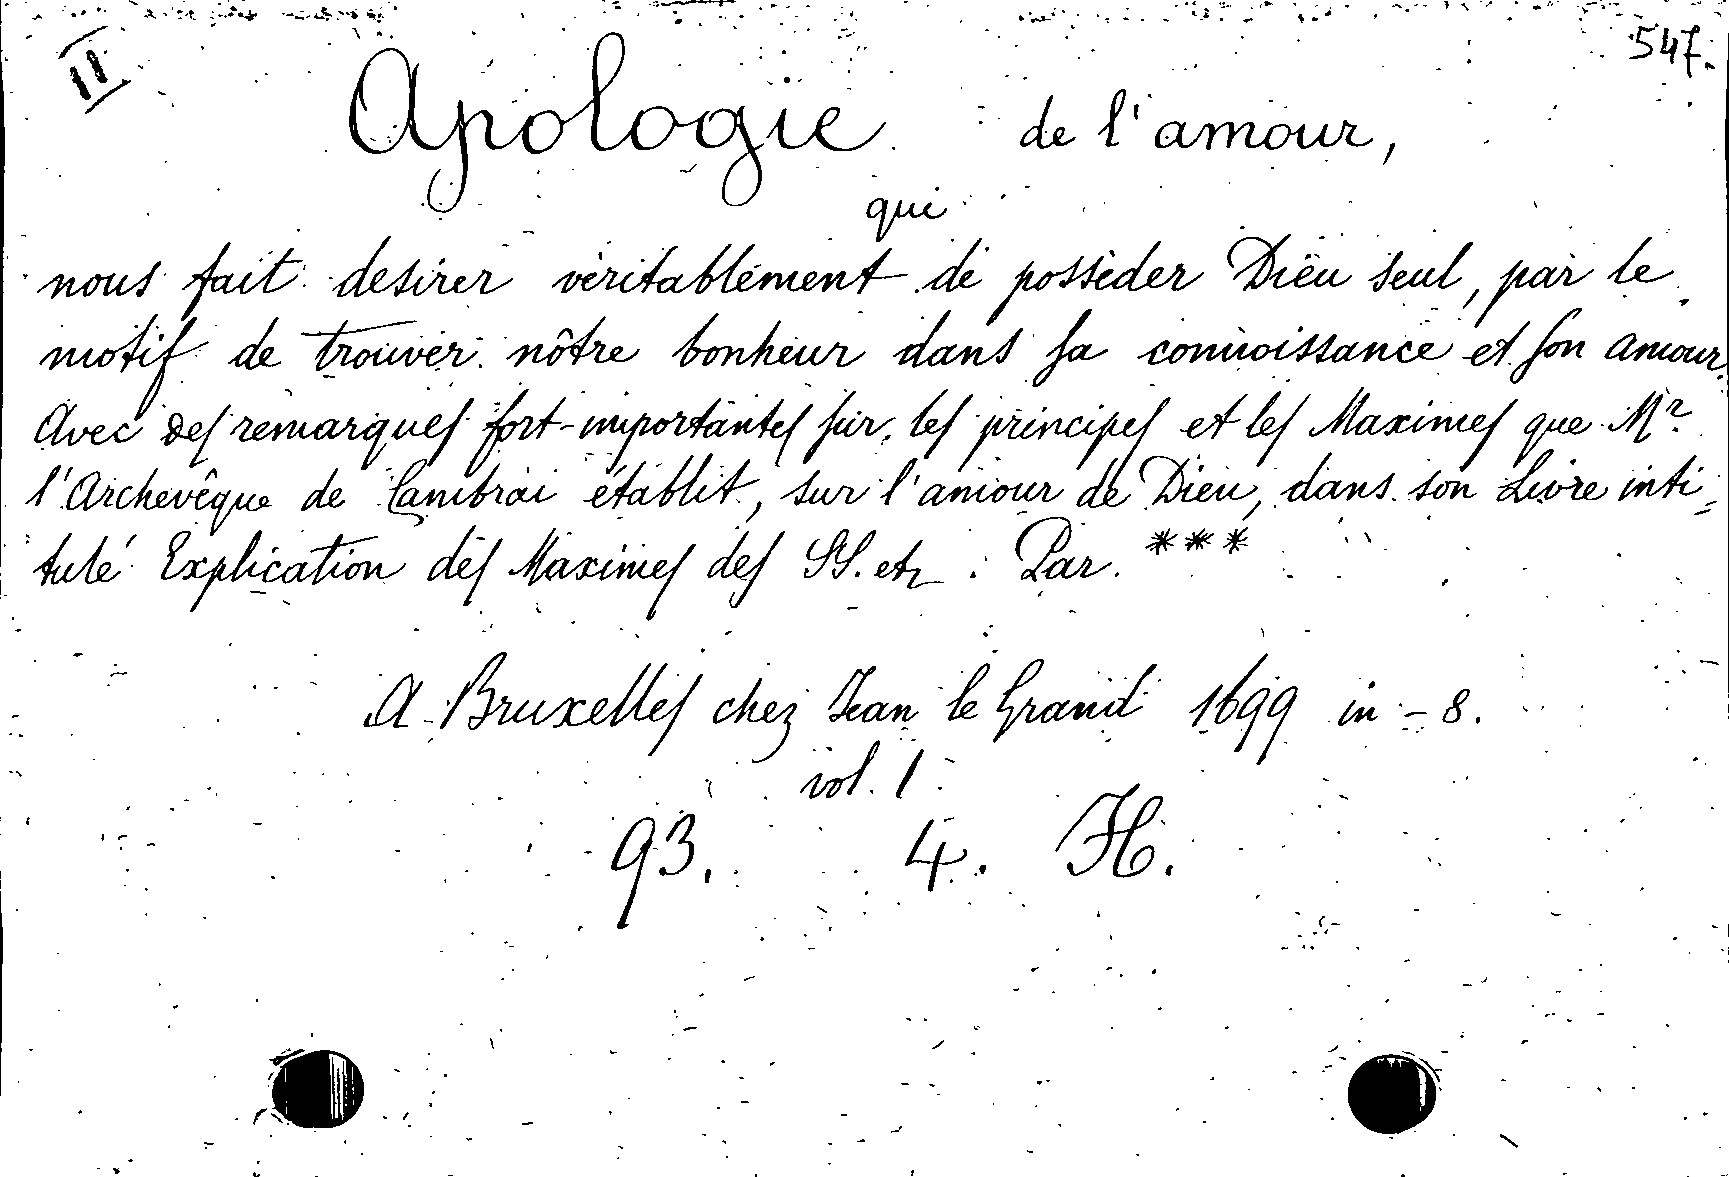 II
547.
Apologie de l'amour,
qui
nous fait desirer véritablement de posséder Dieu seul, par le
motif de trouver nôtre bonheur dans sa connoissance et son amour.
Avec des remarques fort-importantes sur les principes et les Maximes que Mr
l'Archevêque de Cambrai établit, sur l'amour de Dieu, dans son Livre inti=
tulé Explication des Maximes des SS. etz : Par ***
A Bruxelles chez Jean le Grand 1699 in-8.
vol. 1
93. 4. H.